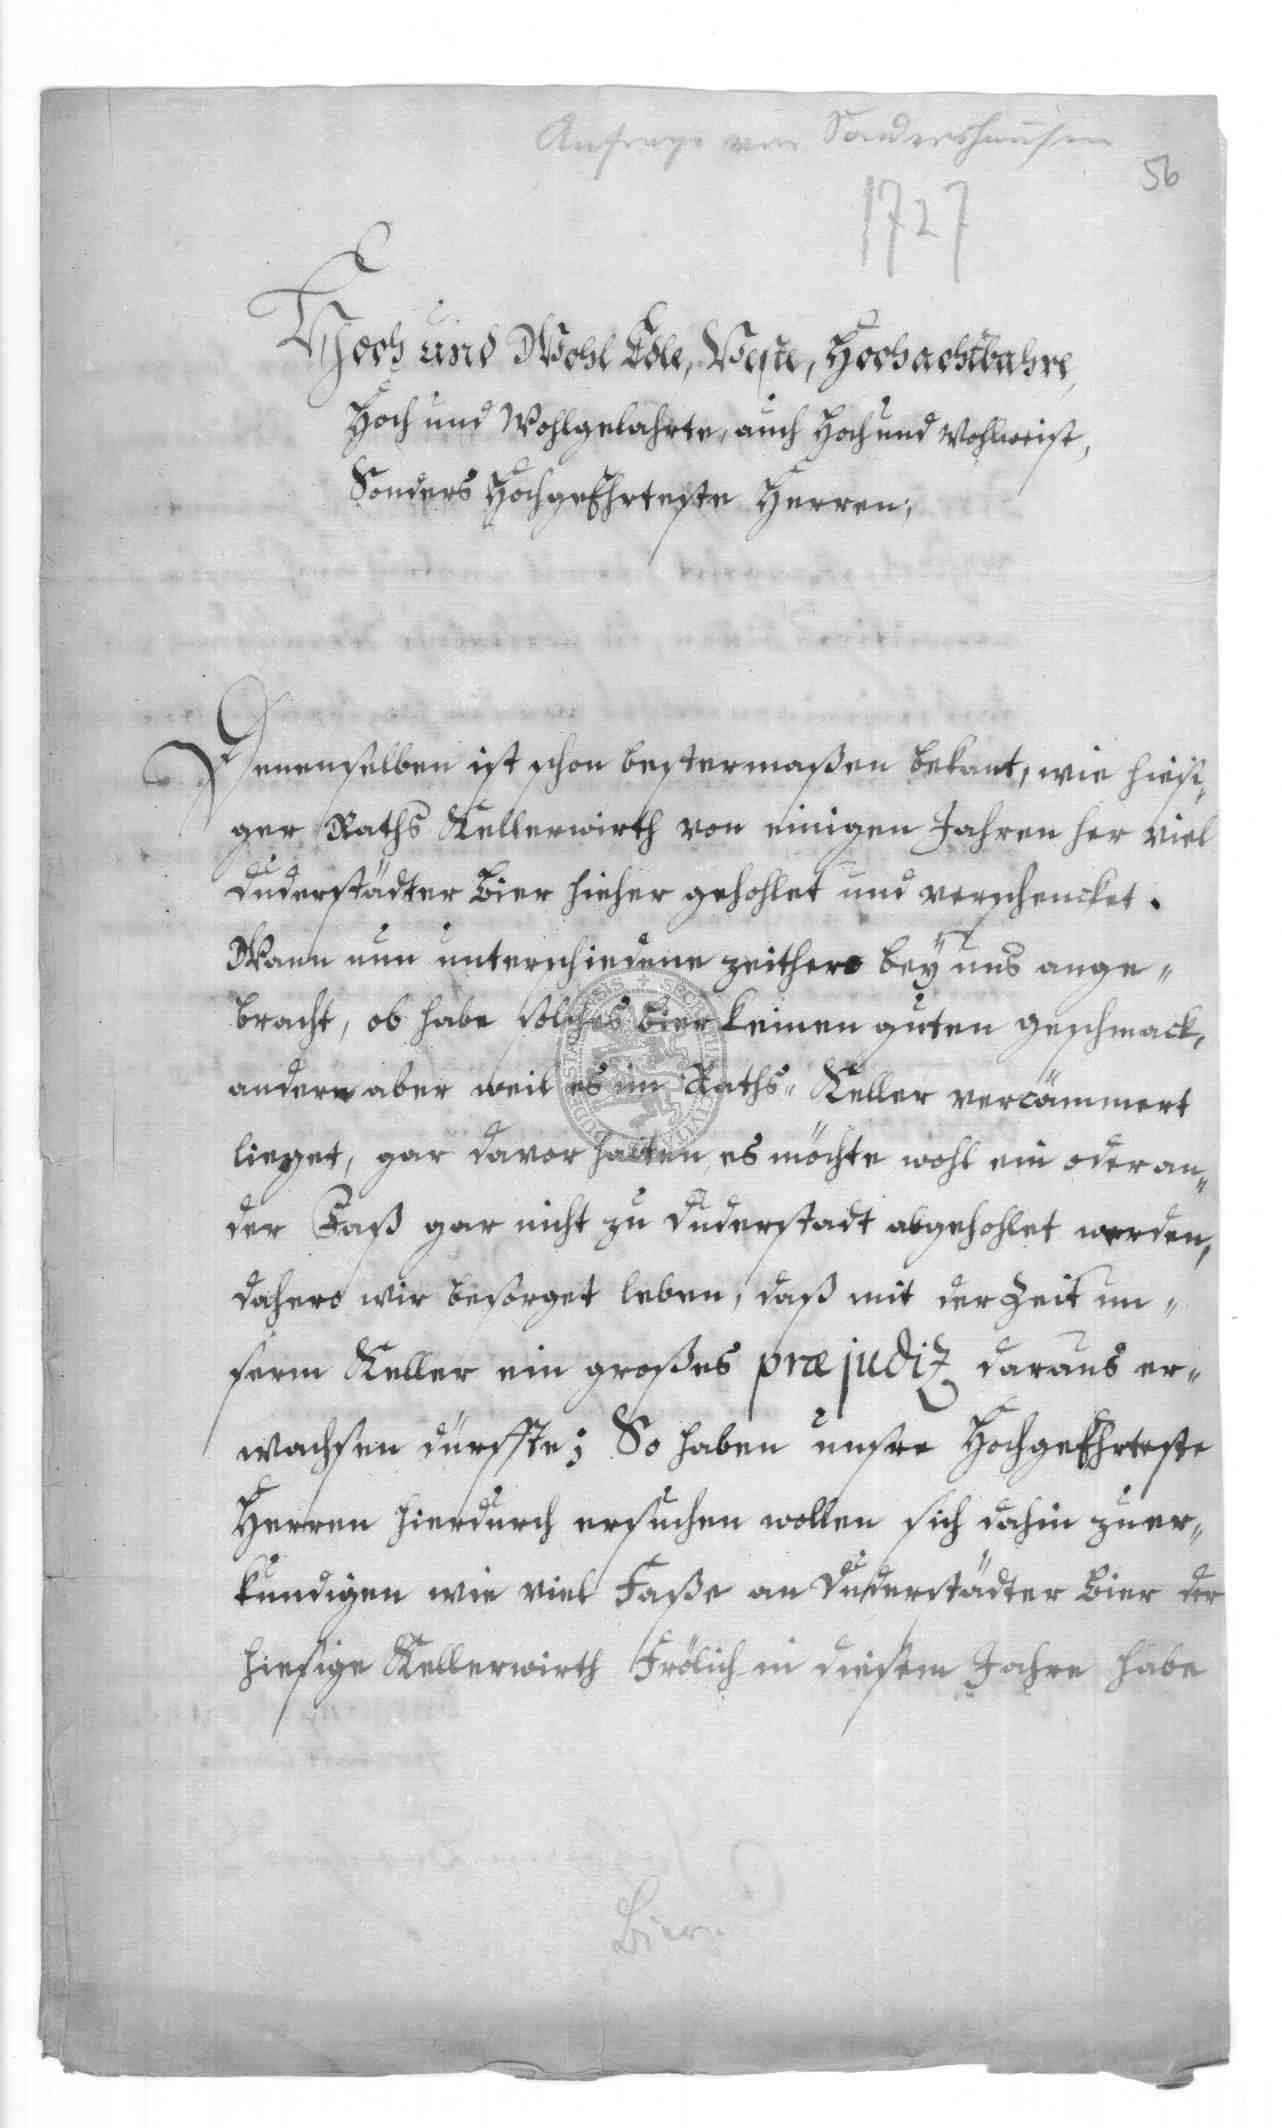 Anfrage von Sondershausen
56
1727
Hoch und Wohl Edle, Veste, Hochachtbahre,
Hoch und Wohlgelahrte, auch Hoch und Wohlweise,
Sonders HochgeEhrteste Herren,
Denenselben ist schon bestermaßen bekant, wie hiesi„
ger Raths Kellerwirth von einigen Jahren her viel
Duderstädter Bier hieher gehohlet und verschencket.
Wann nun unterschiedene zeithero bey uns ange„
bracht, ob habe solches Bier keinen guten geschmack,
andere aber weil es im Raths„ Keller vercämmert
lieget, gar davor halten, es möchte wohl ein oder an„
der Faß gar nicht zu Duderstadt abgehohlet werden,
dahero wir besorget leben, daß mit der Zeit un„
serm Keller ein großes præjudiz daraus er„
wachsen dürffte; So haben unsre HochgeEhrteste
Herren hierdurch ersuchen wollen sich dahin zu er„
kundigen wie viel Faße an Duderstädter Bier der
hiesige Kellerwirth Frölich in diesem Jahre habe
Bier.